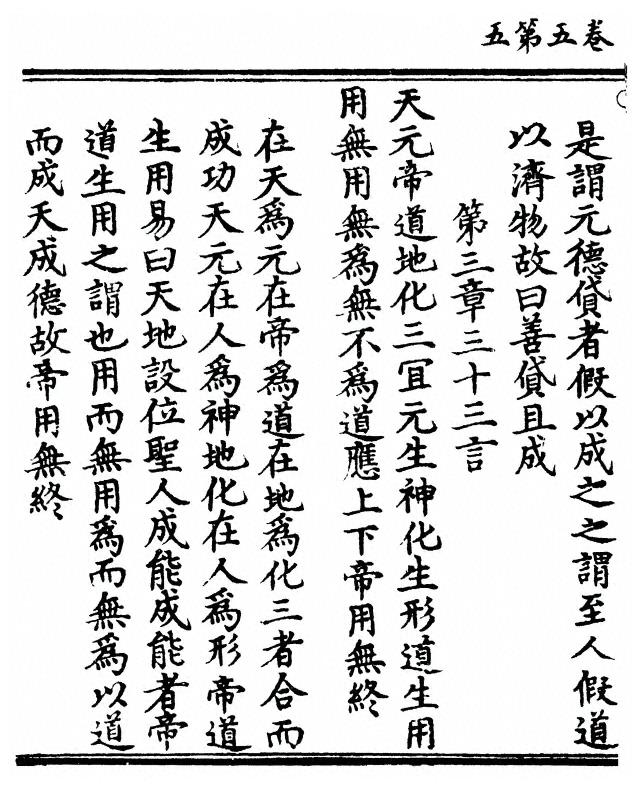 卷五第五
是謂元德貸者假以成之之謂至人假道
以濟物故曰善貸且成
第三章三十三言
天元帝道地化三冝元生神化生形道生用
用無用無爲無不爲道應上下帝用無終
在天爲元在帝爲道在地爲化三者合而
成功天元在人爲神地化在人爲形帝道
生用易曰天地設位聖人成能成能者帝
道生用之謂也用而無用爲而無爲以道
而成天成德故帝用無終